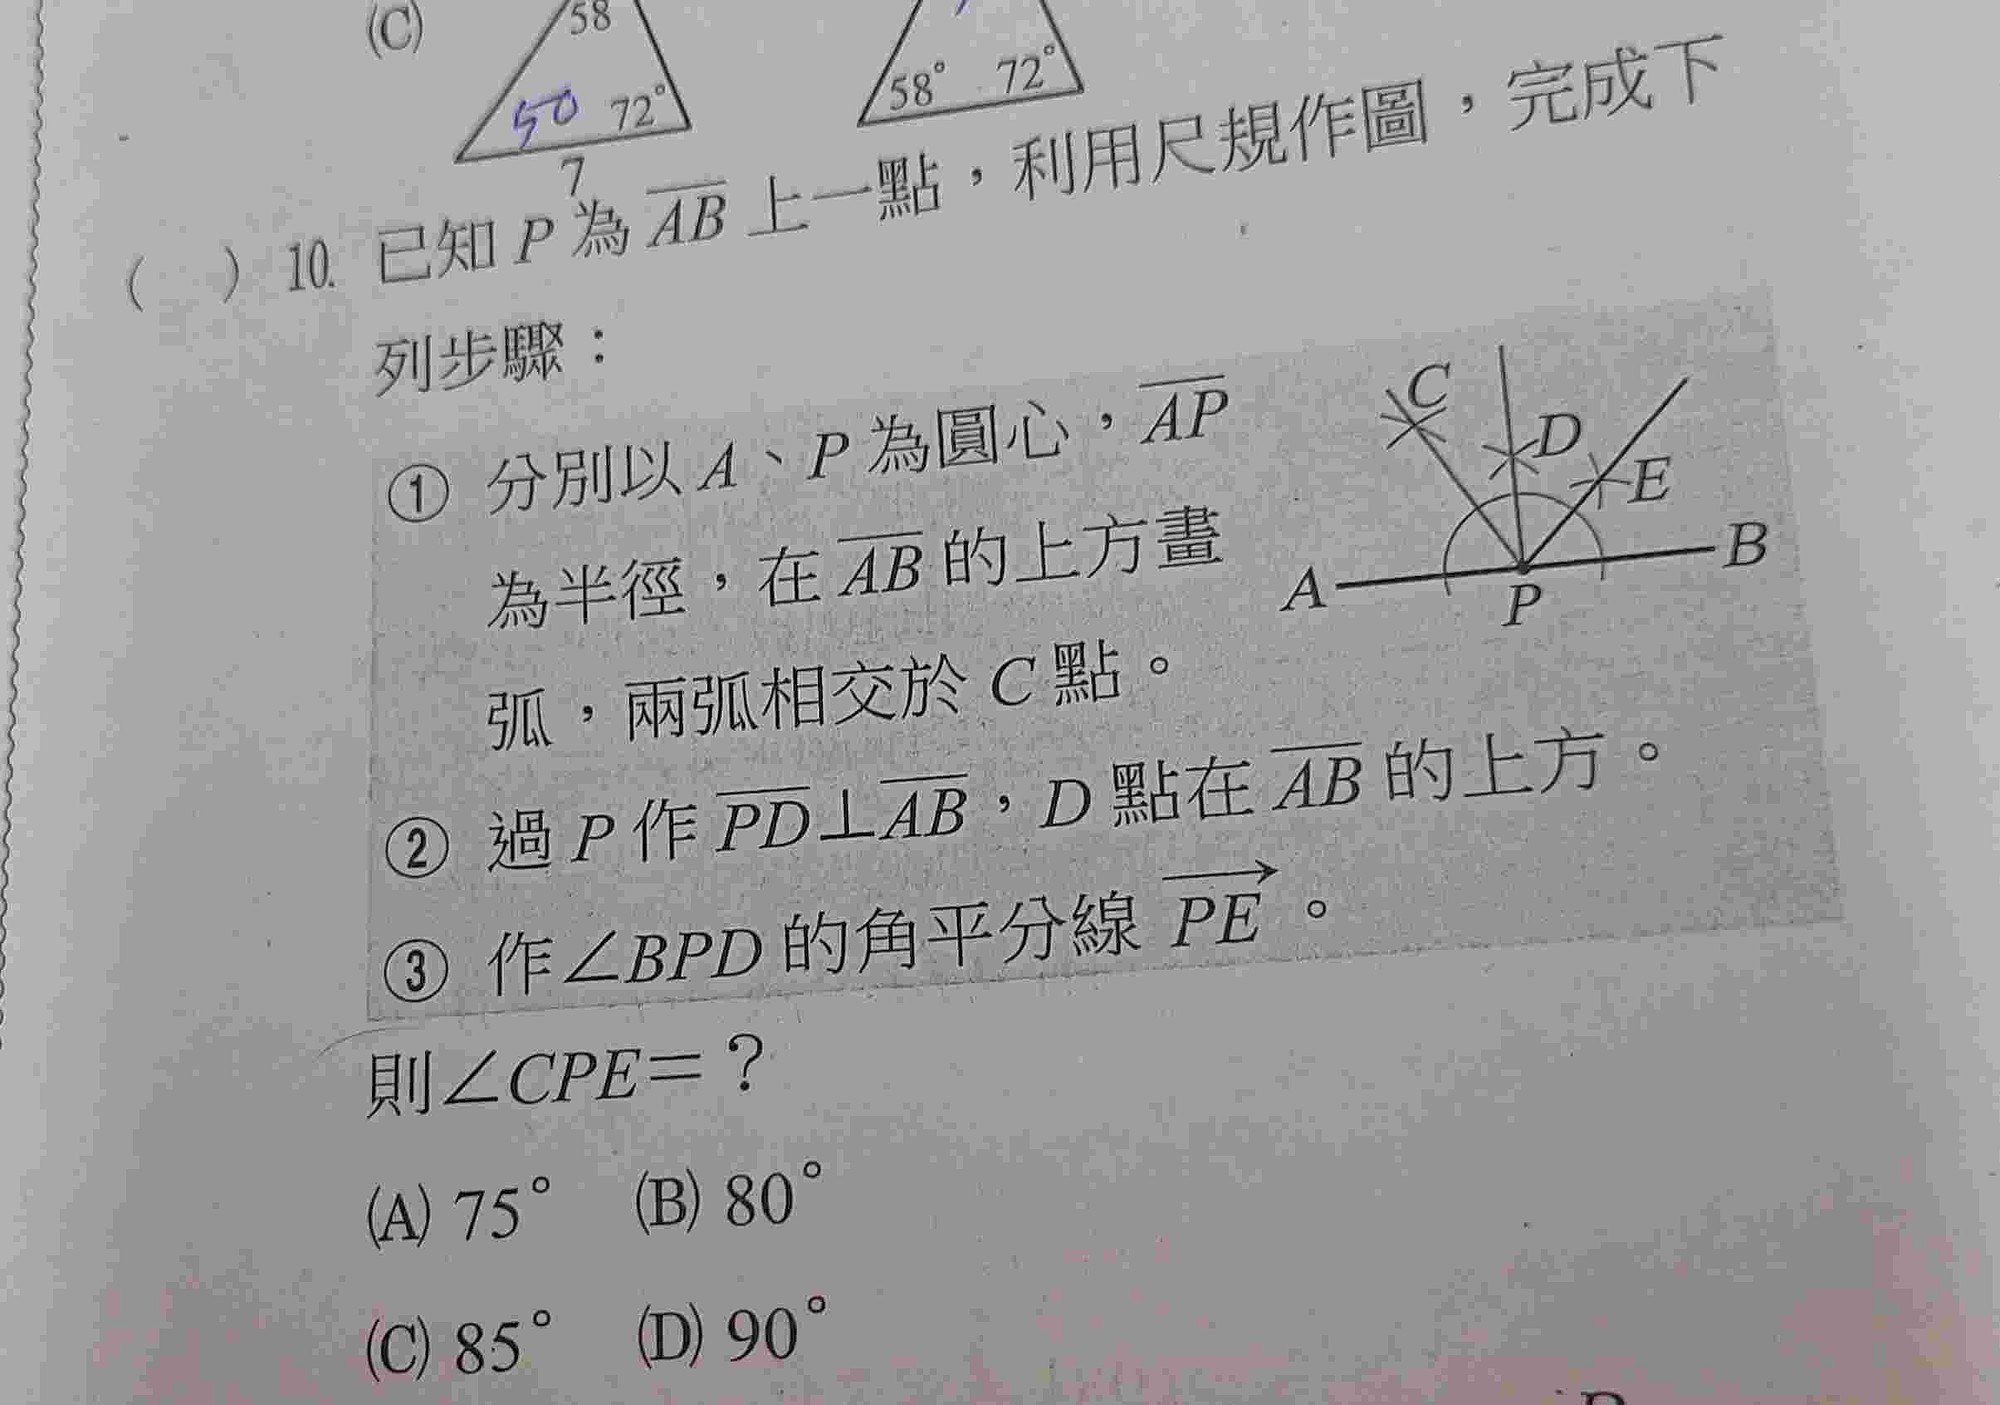 (C)
58
50 72°
7
58° 72°
( ) 10. 已知 P 為 AB 上一點，利用尺規作圖，完成下
列步驟：
① 分別以 A、P 為圓心，AP
為半徑，在 AB 的上方畫
弧，兩弧相交於 C 點。
C
D
E
A
P
B
② 過 P 作 PD⊥AB，D 點在 AB 的上方。
③ 作∠BPD 的角平分線 PE。
則∠CPE=？
(A) 75° (B) 80°
(C) 85° (D) 90°